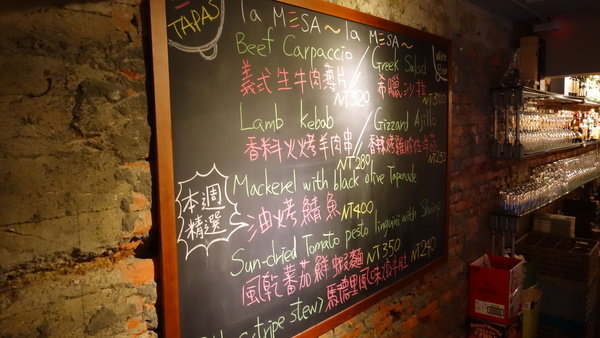 TAPAS
la MESA~la MESA~
Beef Carpaccio / Greek Salad
義式生牛肉薄片 NT320 希臘沙拉 NT300
Lamb kebab / Gizzard Ajillo
香料火烤羊肉串 NT280
NT230
Mackerel with black olive Tapenade
油烤鯖魚 NT400
本週精選
Sun-dried Tomato pesto linguini with Shrimp
風乾蕃茄鮮蝦麵 NT350
NT240
stripe stew>